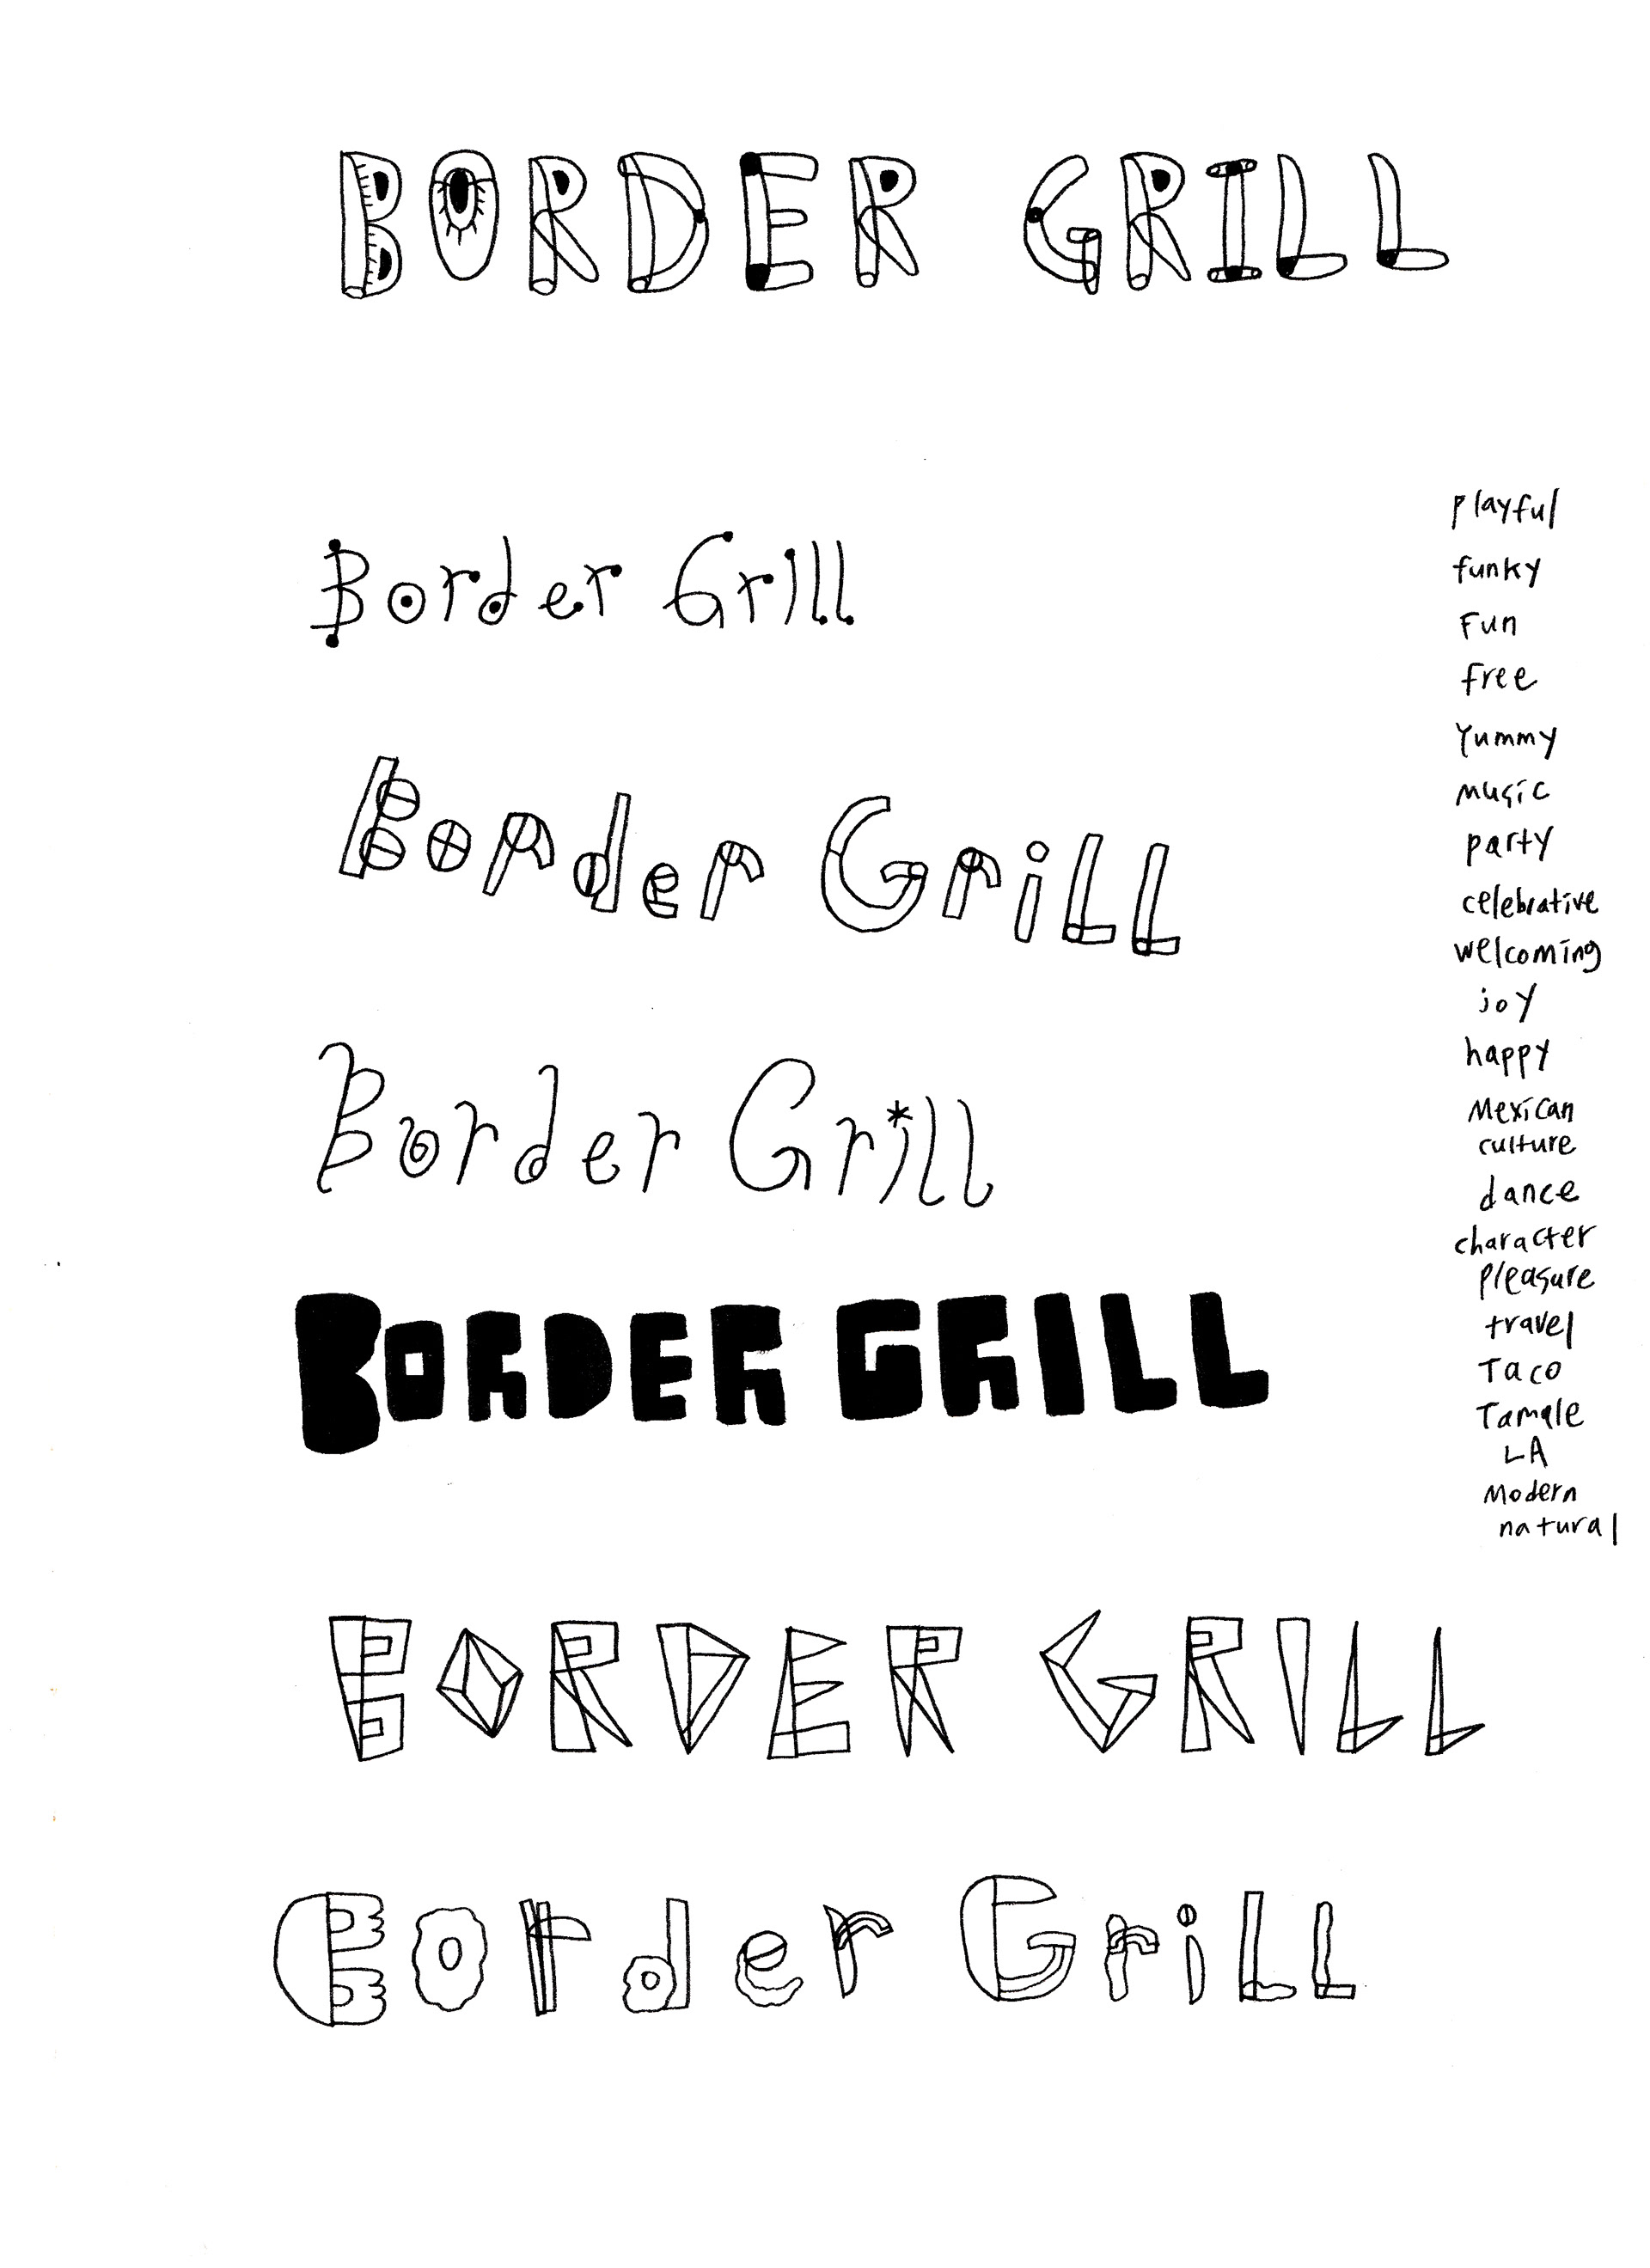 BORDER GRILL
Border Grill
Border Grill
Border Grill
BORDER GRILL
BORDER GRILL
Border GriLL
playful
funky
Fun
free
Yummy
music
party
celebrative
welcoming
joy
happy
Mexican
culture
dance
character
pleasure
travel
Taco
Tamale
LA
Modern
natural